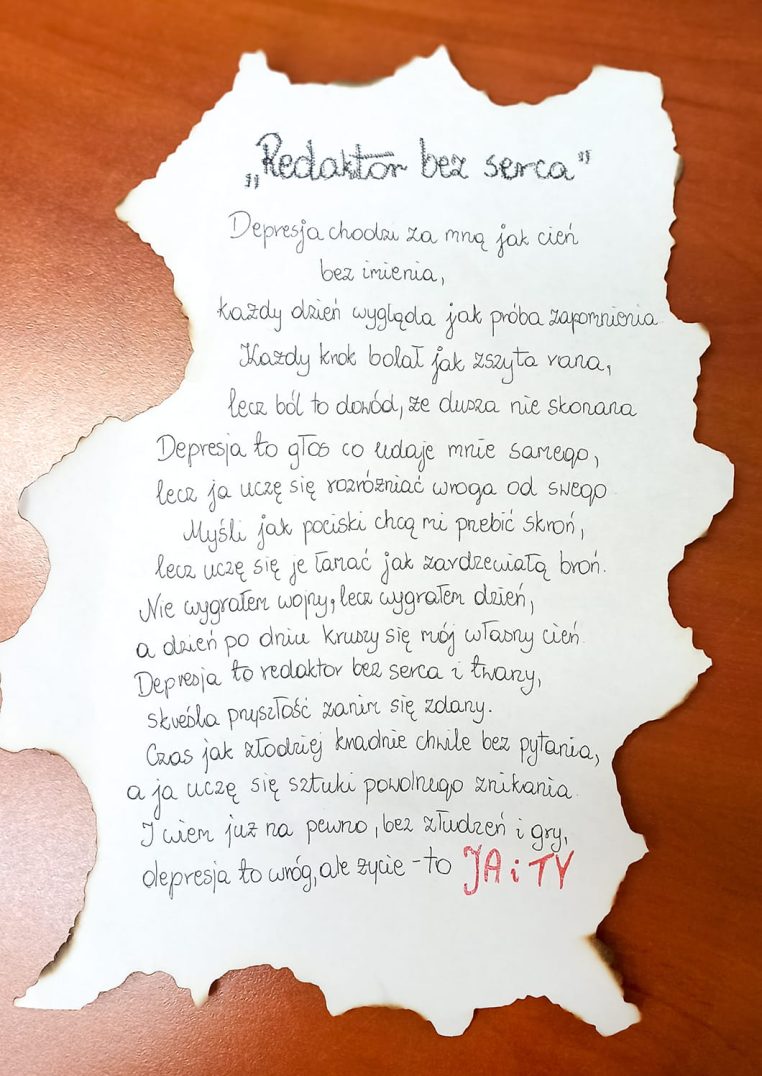 „Redaktor bez serca"
Depresja chodzi za mną jak cień
bez imienia,
każdy dzień wygląda jak próba zapomnienia.
Każdy krok bolał jak zszyta rana,
lecz ból to dowód, że dusza nie skonana
Depresja to głos co udaje mnie samego,
lecz ja uczę się rozróżniać wroga od swego.
Myśli jak pociski chcą mi przebić skroń,
lecz uczę się je łamać jak zardzewiałą broń.
Nie wygrałem wojny, lecz wygrałem dzień,
a dzień po dniu kruszy się mój własny cień.
Depresja to redaktor bez serca i twarzy,
skreśla przyszłość zanim się zdarzy.
Czas jak złodziej kradnie chwile bez pytania,
a ja uczę się sztuki powolnego znikania.
I wiem już na pewno, bez złudzeń i gry,
depresja to wróg, ale życie - to JA i TY